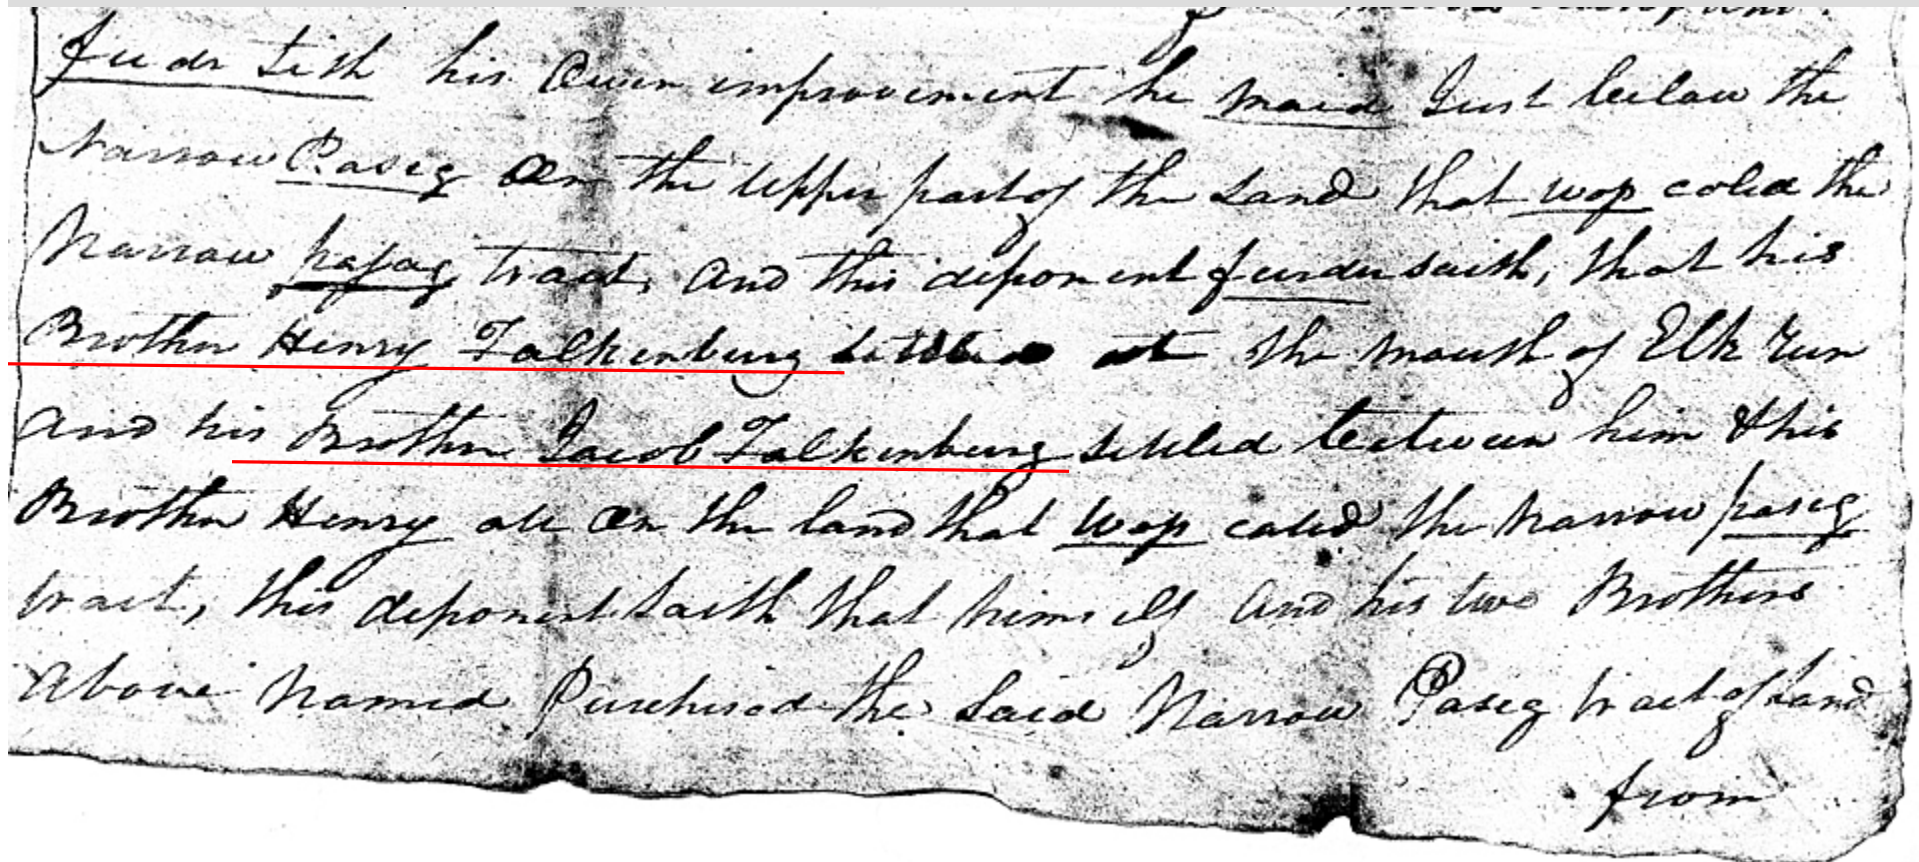 fudr Sith his Own improvement he maid Just below the
Narrow Paseg On the Upper part of the Land that wos coled the
Narrow pasag tract, And this deponent furder saith, that his
Brother Henry Falkenburg settled at the mouth of Elk Run
And his Brother Jacob Falkenburg settled between him & his
Brother Henry ale On the land that wos caled the Narrow paseg
tract, this deponent Saith that himself And his two Brothers
Above Named Purchised the Said Narrow Paseg tract of Land
from